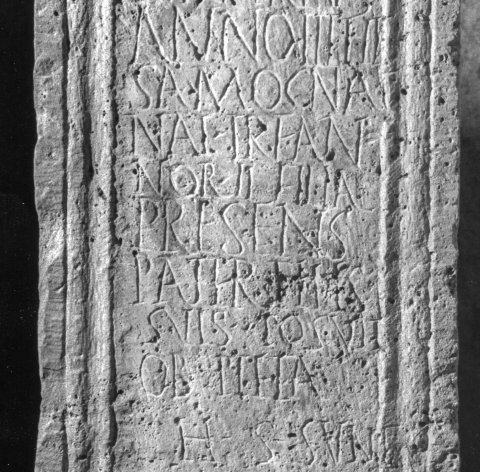 ANNO III FII
SAMOGNA
NAE TREAN
NOR II FILIA
PRESENS
PATER FILIS
SVIS POSVIT
OB PIETA
H S SVNT